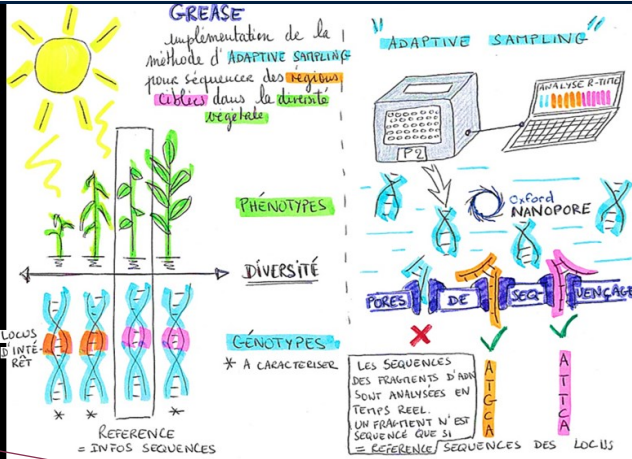 GREASE
implémentation de la
méthode d'ADAPTIVE SAMPLING
pour séquencer des régions
ciblées dans la diversité
végétale
PHÉNOTYPES
DIVERSITÉ
LOCUS
D'INTÉ-
RÊT
GÉNOTYPES
* A CARACTERISER
* * *
REFERENCE
= INFOS SEQUENCES
"ADAPTIVE SAMPLING"
ANALYSE R-TIME
P2
Oxford
NANOPORE
PORES DE SEQ- UENÇAGE
LES SEQUENCES
DES FRAGMENTS D'ADN
SONT ANALYSÉES EN
TEMPS REEL.
UN FRAGMENT N'EST
SEQUENCÉ QUE SI
= REFERENCE/SEQUENCES DES LOCUS
ATGCA
ATTCA